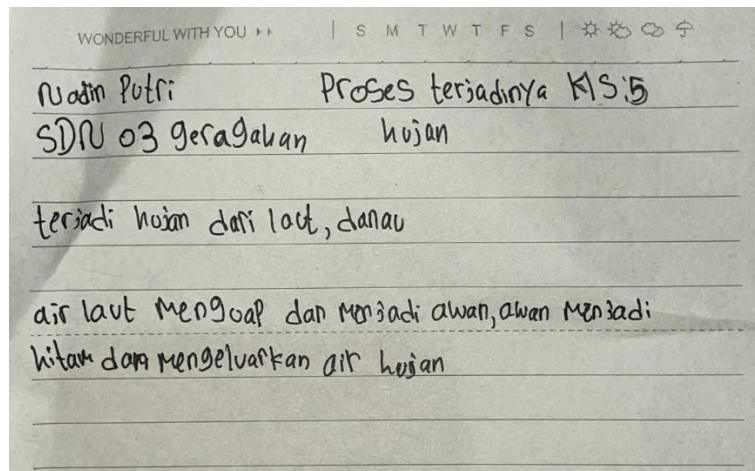 WONDERFUL WITH YOU | S M T W T F S |
Nadin Putri Proses terjadinya KlS:5
SDN 03 geragahan hujan
terjadi hujan dari laut, danau
air laut menguap dan menjadi awan, awan menjadi
hitam dan mengeluarkan air hujan